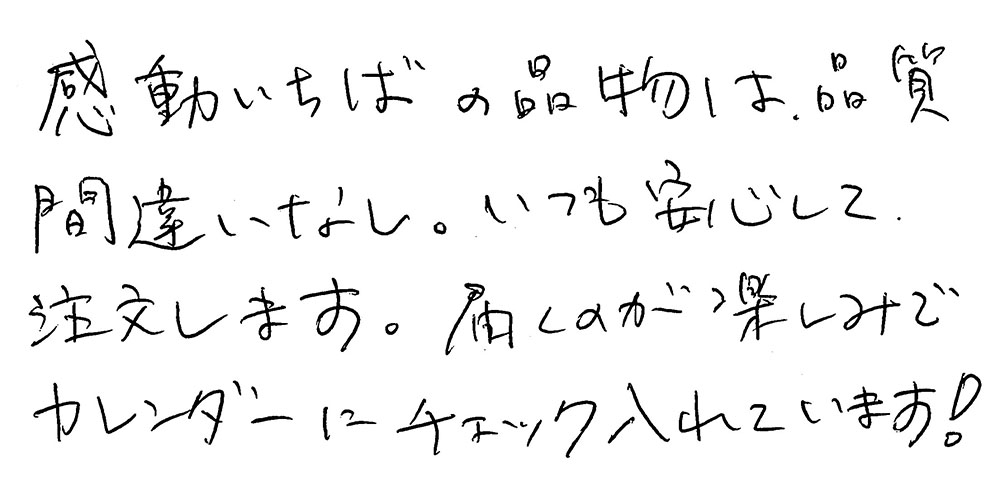 感動いちばの品物は、品質
間違いなし。いつも安心して、
注文します。届くのが楽しみで
カレンダーにチェック入れています!